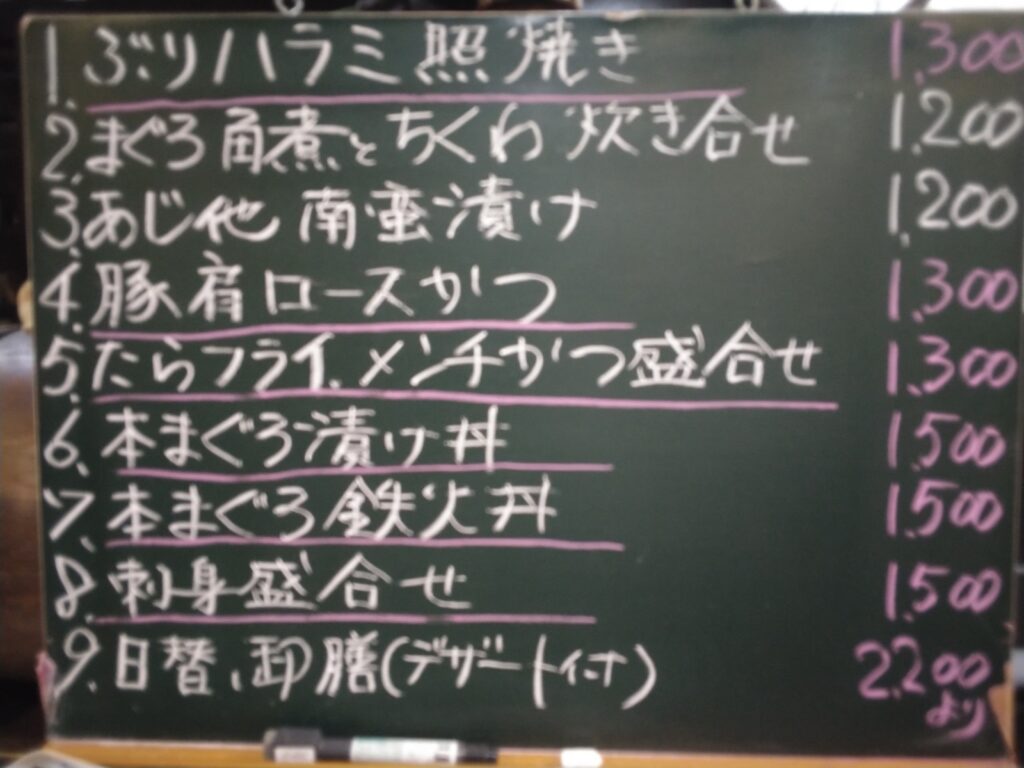 1. ぶりハラミ照焼き 1,300
2. まぐろ角煮とちくわ炊き合せ 1,200
3. あじ他南蛮漬け 1,200
4. 豚肩ロースかつ 1,300
5. たらフライ、メンチかつ盛合せ 1,300
6、本まぐろ漬け丼 1,500
7、本まぐろ鉄火丼 1,500
8. 刺身盛合せ 1,500
9. 日替、卸膳(デザート付) 2,200
より